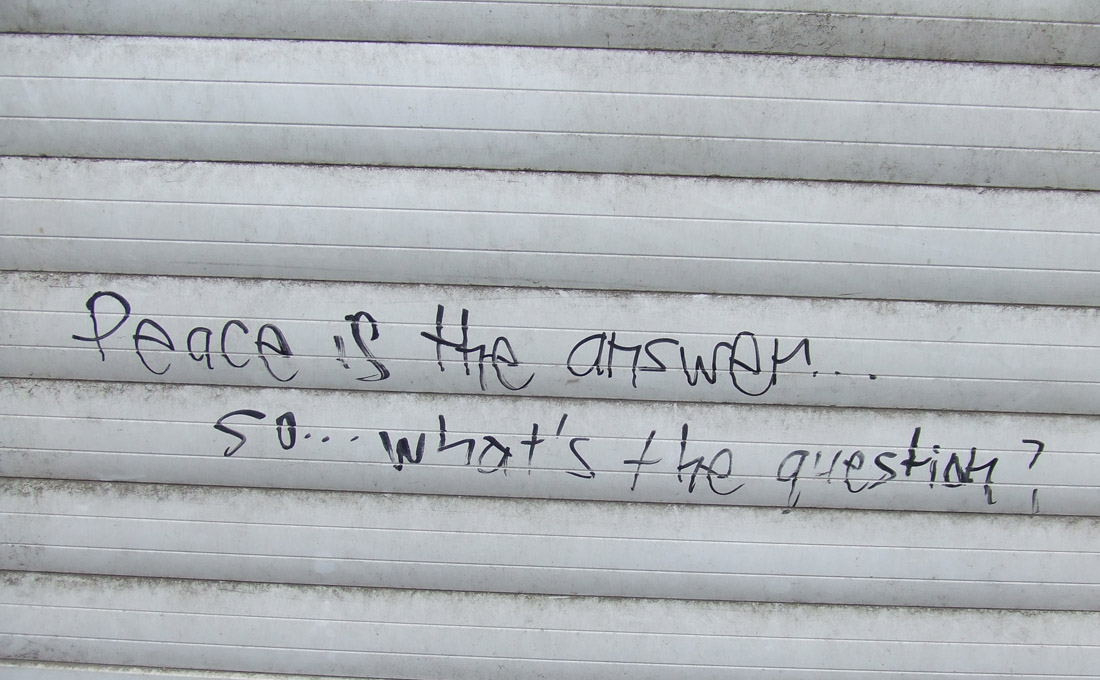 Peace is the answer...
so... what's the question?